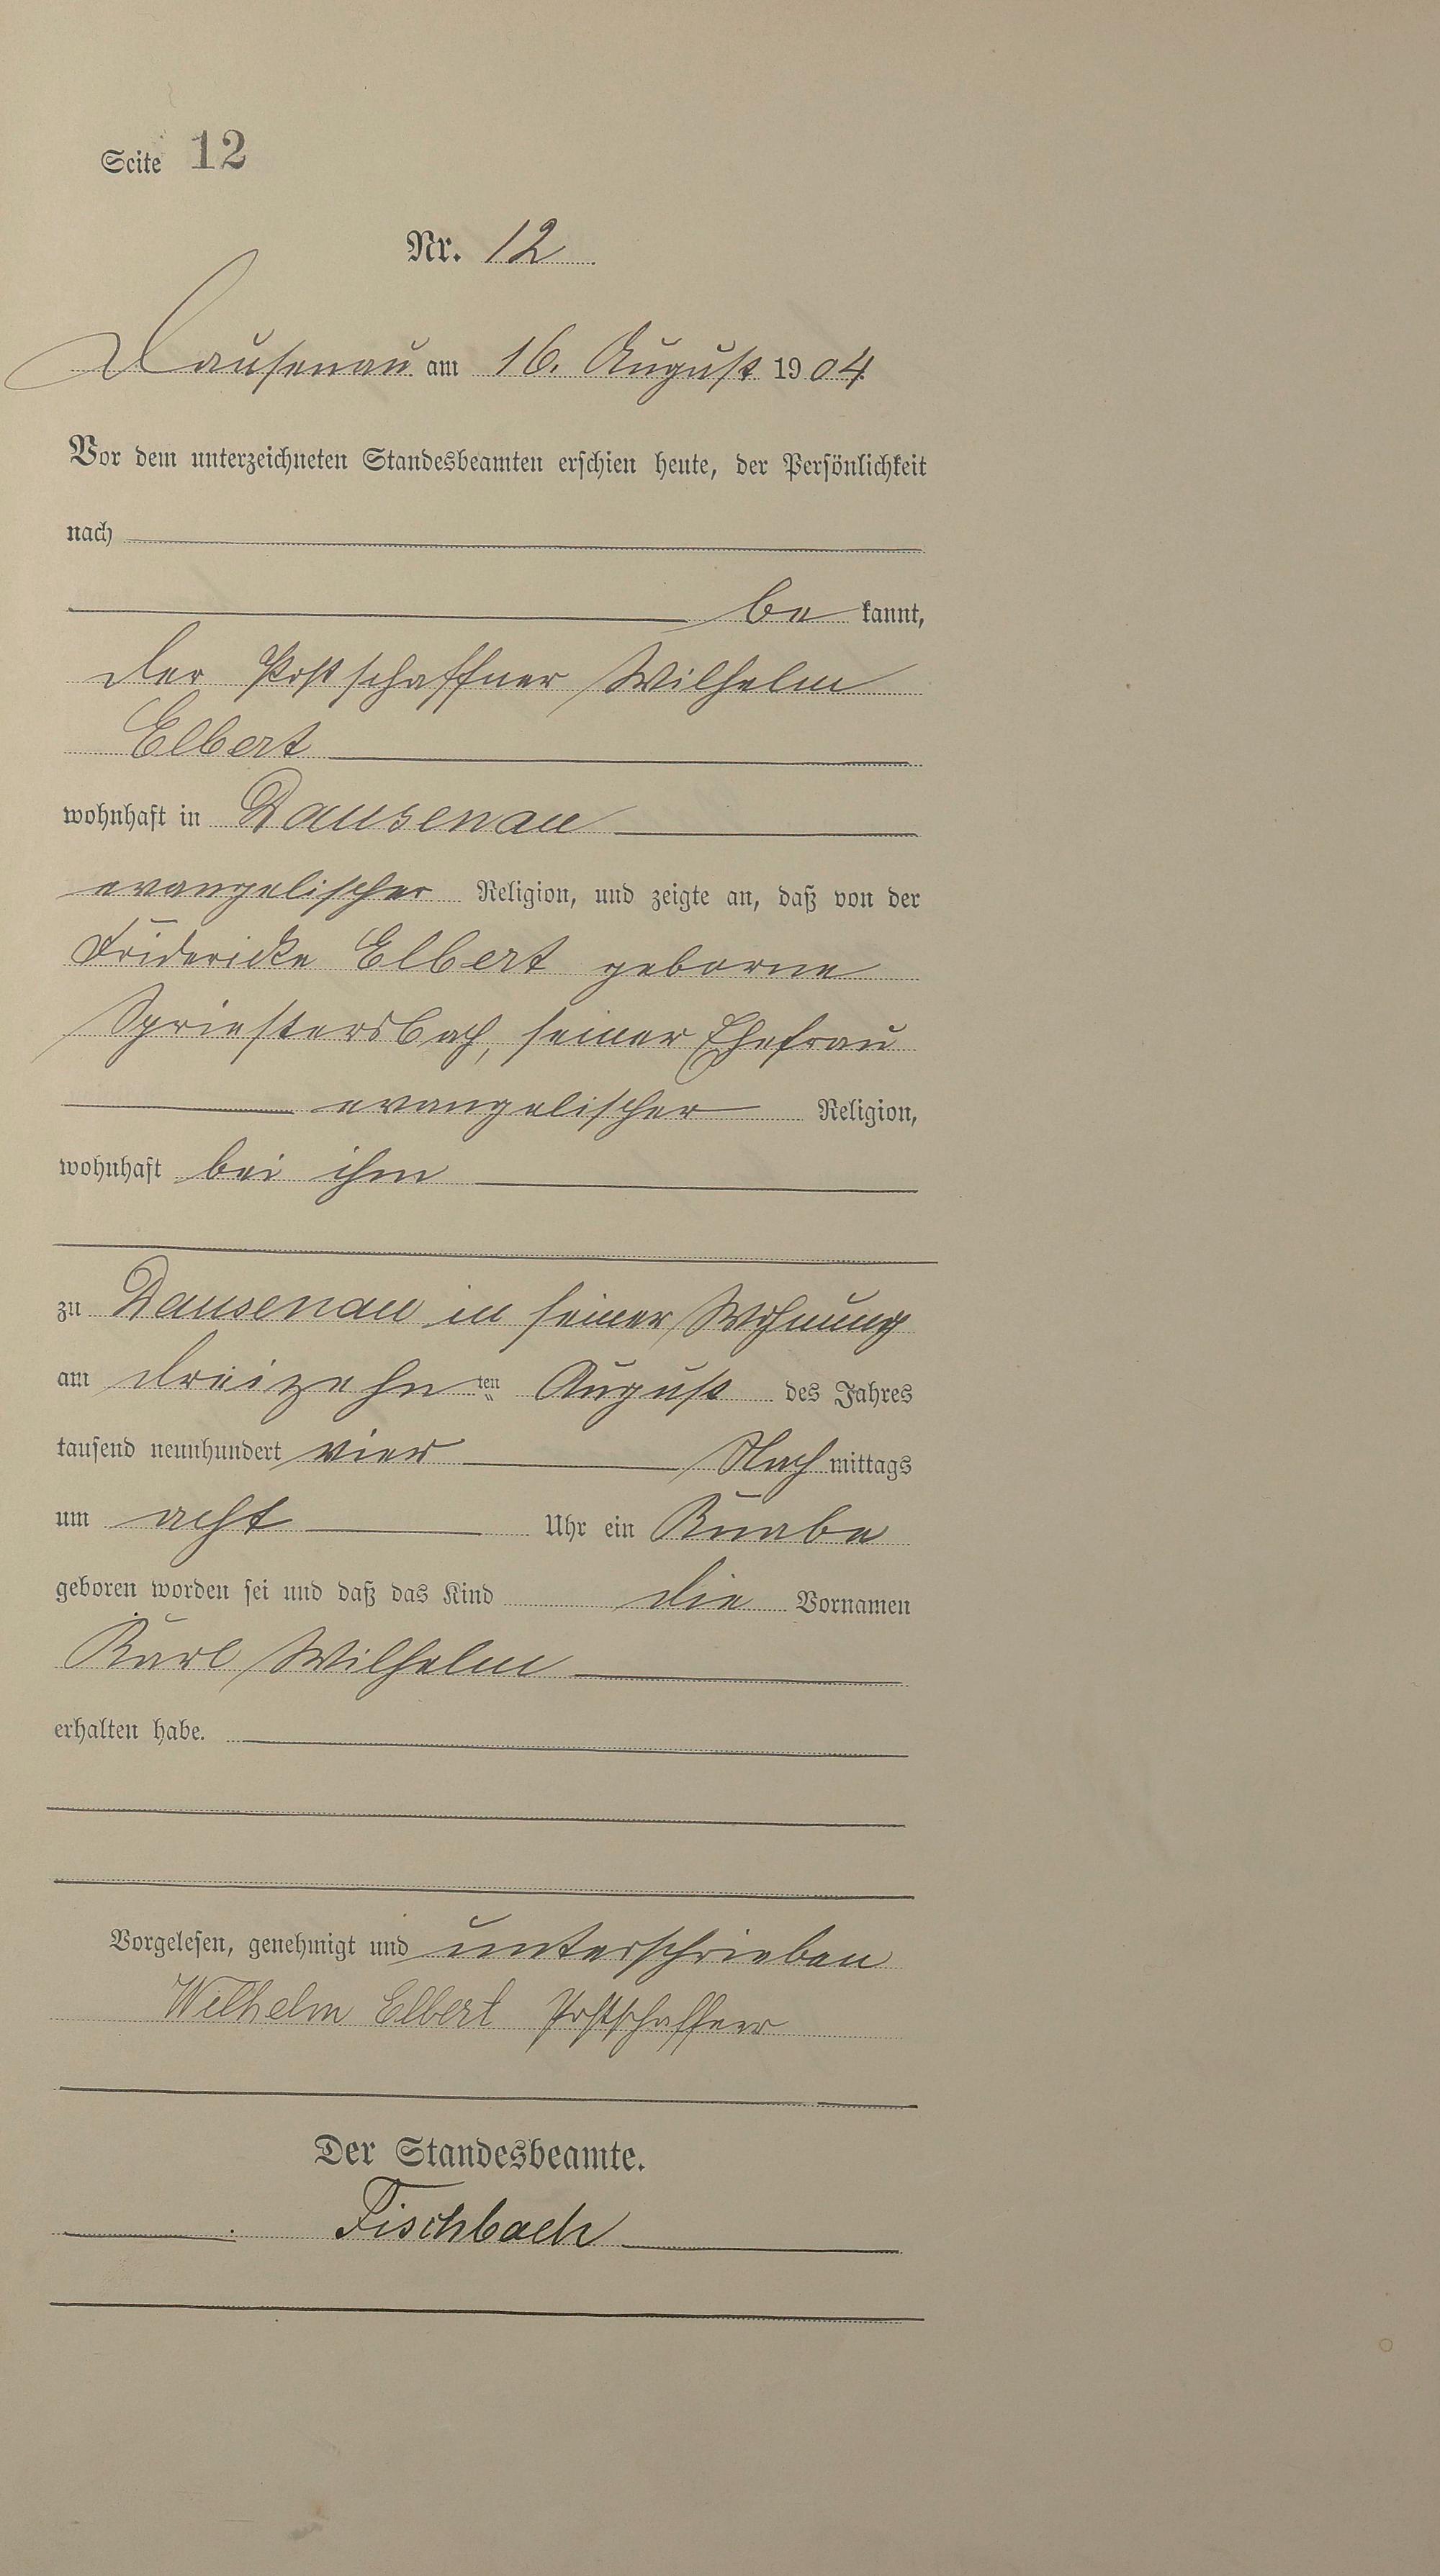 Seite 12
Nr. 12
Dausenau am 16. August 1904.
Vor dem unterzeichneten Standesbeamten erschien heute, der Persönlichkeit
nach
be kannt,
der Postschaffner Wilhelm
Elbert
wohnhaft in Dausenau
evangelischer Religion, und zeigte an, daß von der
Fridericke Elbert geborne
Spriestersbach, seiner Ehefrau
evangelischer Religion,
wohnhaft bei ihm
zu Dausenau in seiner Wohnung
am dreizehnten August des Jahres
tausend neunhundert vier Nachmittags
um acht Uhr ein Knabe
geboren worden sei und daß das Kind die Vornamen
Karl Wilhelm
erhalten habe.
Vorgelesen, genehmigt und unterschrieben
Wilhelm Elbert Postschaffner
Der Standesbeamte.
Fischbach